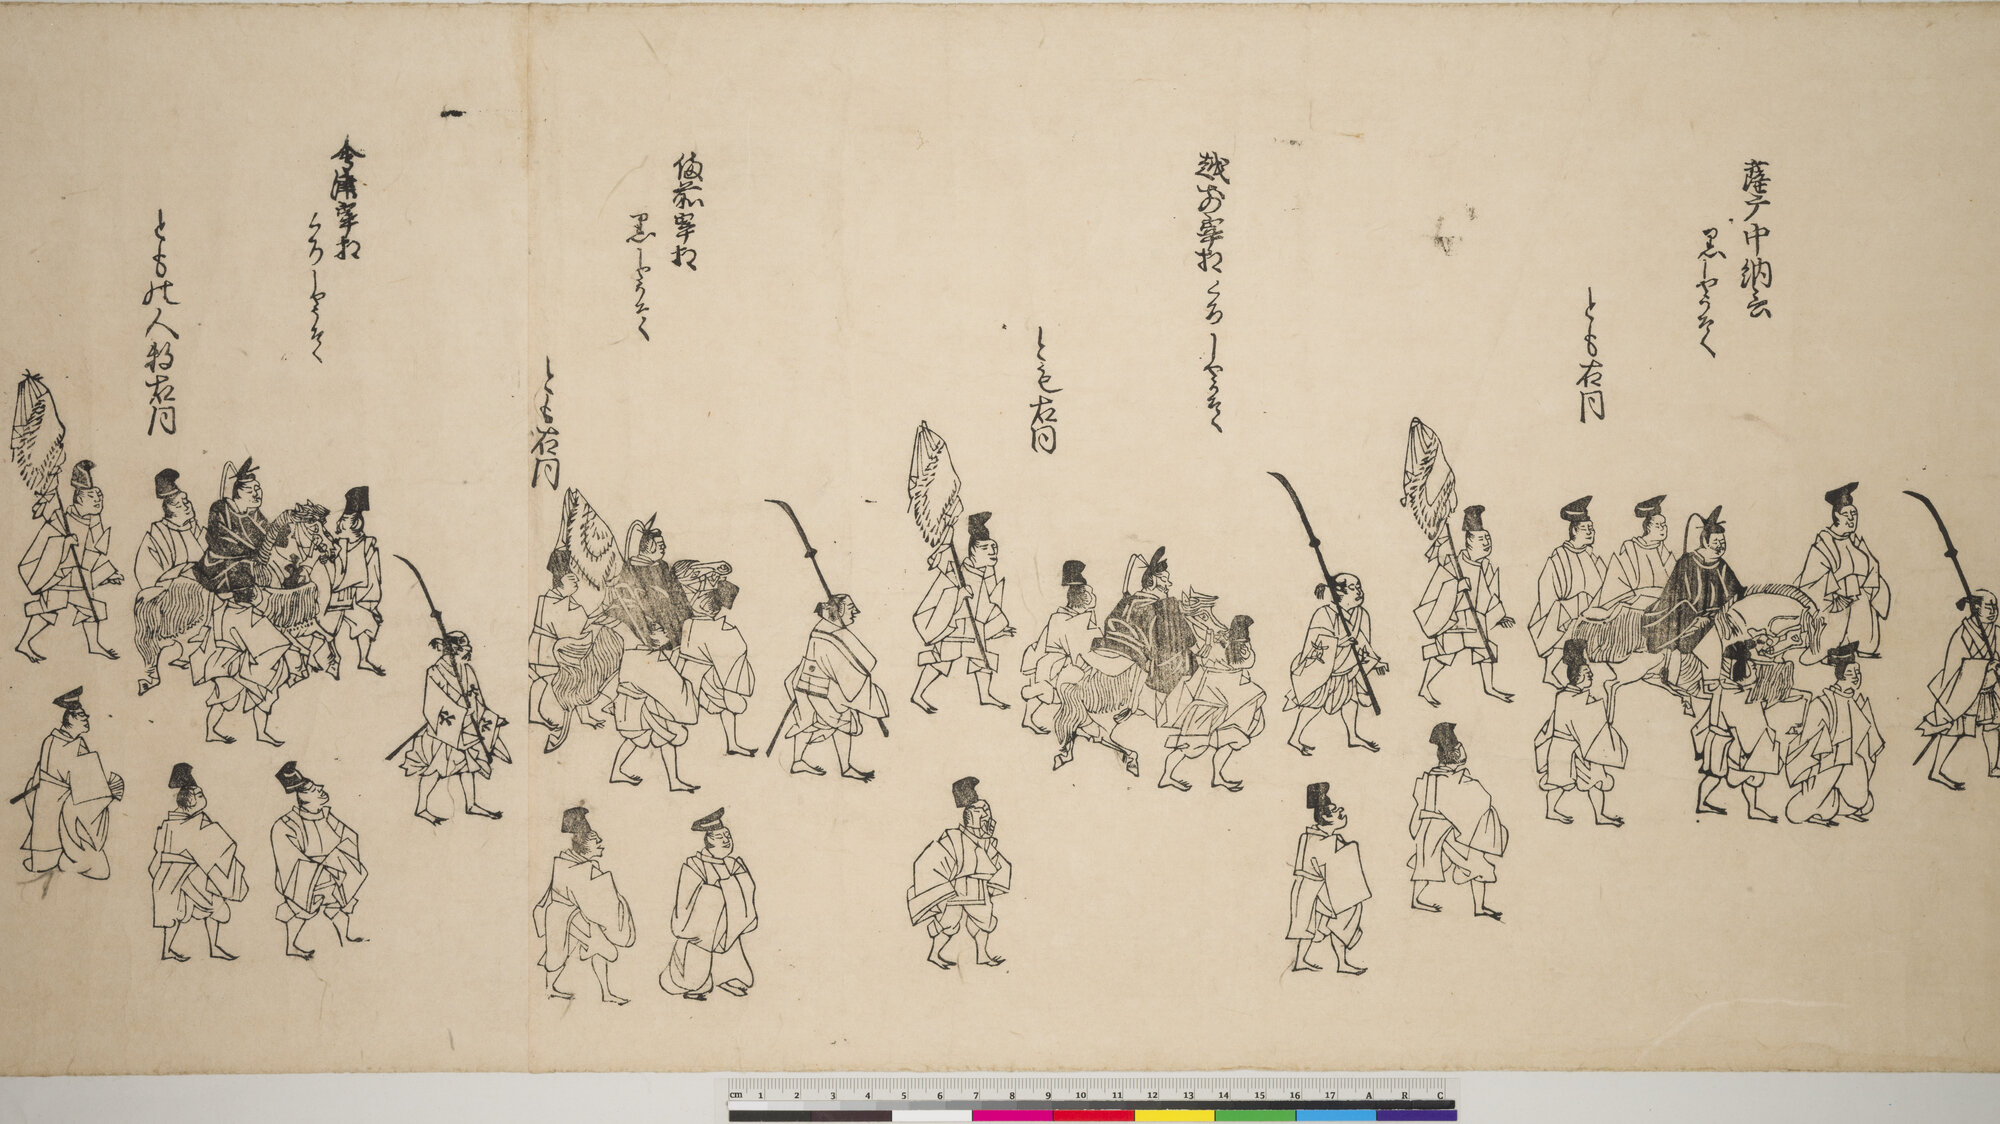 薩广中納言
黒しやうそく
とも右同
越前宰相くろしやうそく
とも右同
備前宰相
黒しやうそく
とも右同
会津宰相
くろしやうそく
ともの人数右同
cm 1 2 3 4 5 6 7 8 9 10 11 12 13 14 15 16 17 A R C